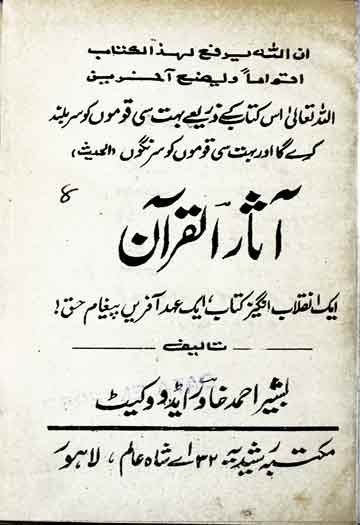 ان اللہ یرفع لہذا الکتاب
اقواماً ولیضع آخرین
اللہ تعالیٰ اس کتاب کے ذریعے بہت سی قوموں کو سربلند
کرے گا اور بہت سی قوموں کو سرنگوں (الحدیث)
8
آثار القرآن
ایک انقلاب انگیز کتاب، ایک عہد آفریں پیغام حق!
تالیف
بشیر احمد خاور ایڈووکیٹ
مکتبہ رشیدیہ ۳۲ اے شاہ عالم، لاہور